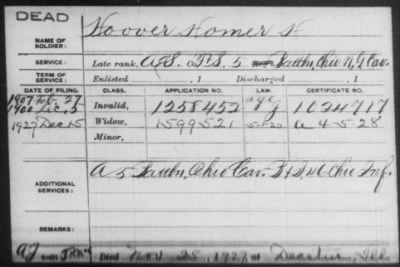 DEAD
NAME OF SOLDIER: Hoover Homer H
SERVICE: Late rank, 5 Battln, Ohio Cav.
TERM OF SERVICE: Enlisted , 1 Discharged , 1
DATE OF FILING. CLASS. APPLICATION NO. LAW. CERTIFICATE NO.
1907 Feb. 27
Invalid, 1258452 age 1024717
1927 Dec 15 Widow, 1599521 A 4-5-28
Minor,
ADDITIONAL SERVICES: A 5 Battln, Ohio Cav. Ohio Inf.
REMARKS:
Died Nov 25, 1927, at Decatur, Ill.